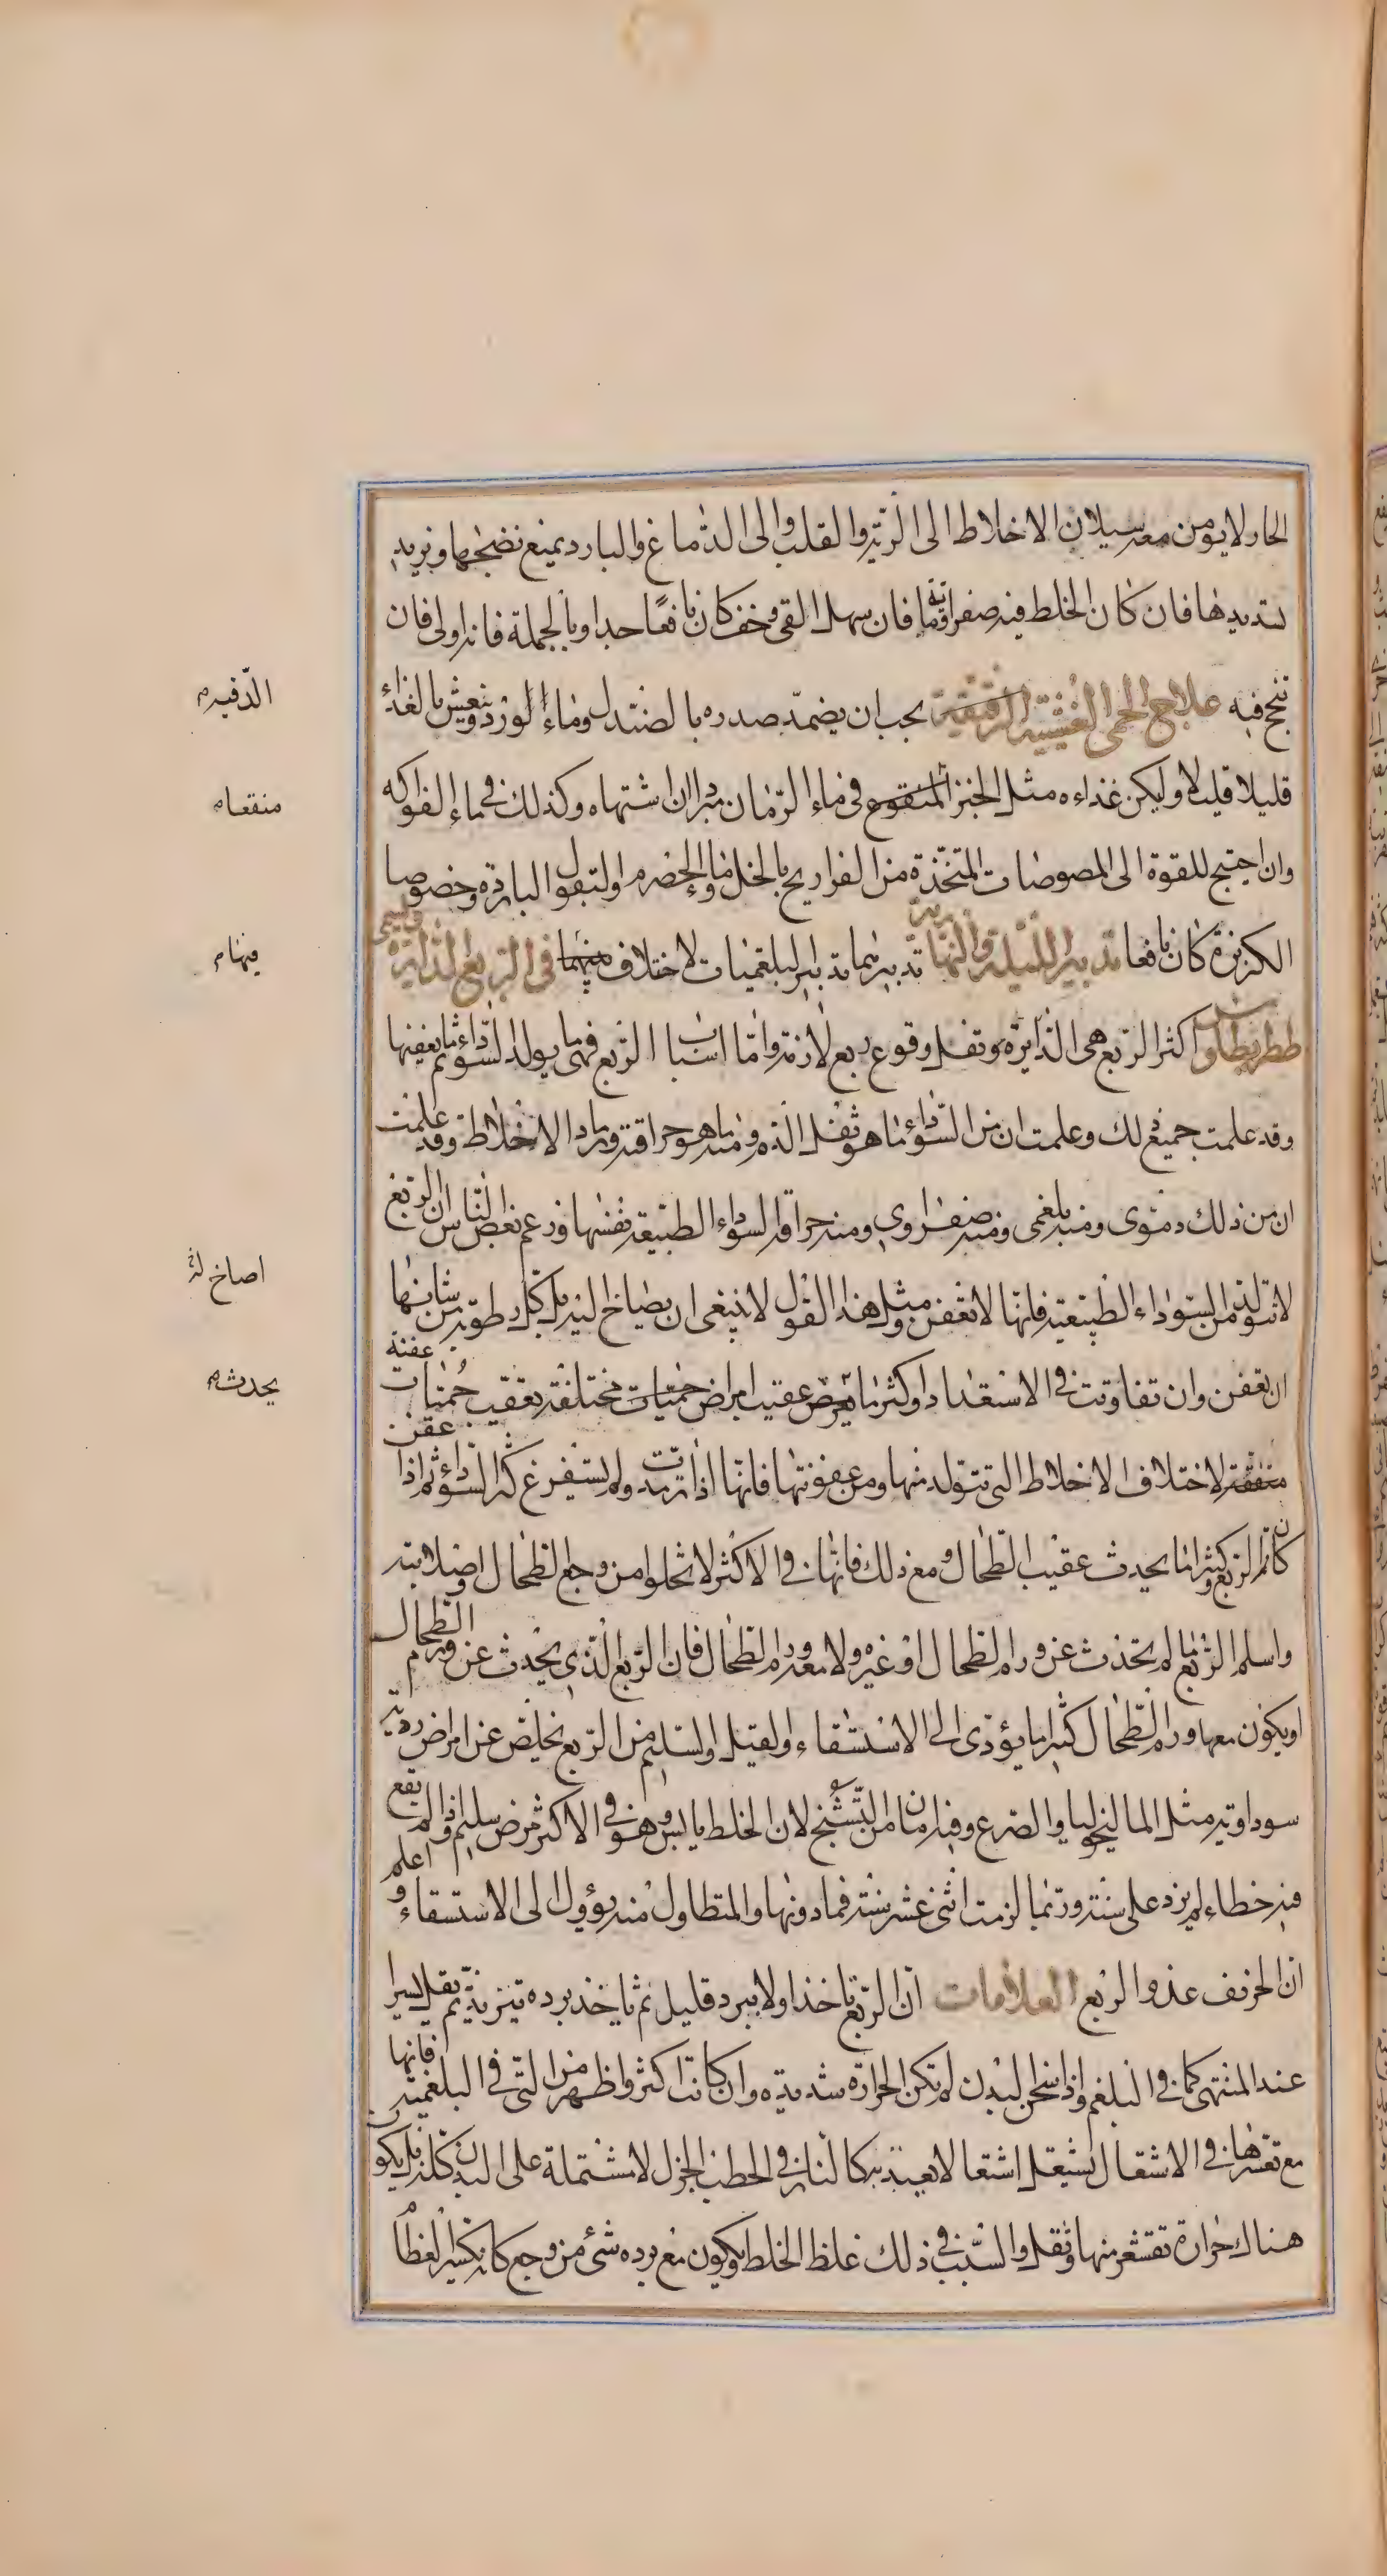 الحار لا يومن معه سيلان الاخلاط الى الرئة والقلب والى الدماغ والبارد يمنع نضجها ويزيد
تسديدها فان كان الخلط فيه صفراوية ما فان سهل القى وخف كان نافعا جدا وبالجملة فانه اولى فان
ينجح فيه علاج الحمى الغشيية الرقيقية يجب ان يضمد صدره بالصندل وماء الورد وينعش بالغذاء
الدقية م
قليلا قليلا وليكن غذاءه مثل الخبز المنقوع في ماء الرمان مبردا ان اشتهاه وكذلك في ماء الفواكه
منقعا م
وان احتيج للقوة الى المصوصات المتخذة من الفراريج بالخل وماء الحصرم او البقول الباردة وخصوصا
الكزبرة كان نافعا تدبير الليلية والنهارية تدبيرهما تدبير البلغميات لا اختلاف منهما في الربع الدايرة وتسمى
فيها م
ططريطاوس اكثر الربع هي الدايرة وتقل وقوع ربع لازمة واما اسباب الربع فهي ما يولد السوداء ثم ما يعفنها
وقد علمت جميع ذلك وعلمت ان من السوداء ما هو ثفل الدم ومنه ما هو حراقته ورماد الاخلاط وقد علمت
ان من ذلك دموى ومنه بلغمى ومنه صفراوى ومنه حراقة السوداء الطبيعية نفسها وزعم بعض الناس ان الربع
لا تتولد من السوداء الطبيعية فانها لا تعفن ومثل هذا القول لا ينبغى ان يصاخ اليه بل كل رطوبة من شانها
اصاخ له
ان تعفن وان تفاوتت في الاستعداد واكثر ما يعرض عقيب امراض حميات مختلفة يعقيب حميات عفنة
يحدث م
متفقة لاختلاف الاخلاط التى تتولد منها ومن عفونتها فانها اذا ترمدت ولم يستفرغ كثر السوداء ثم اذا عفن
كان ثم الربع وكثيرا ما يحدث عقيب الطحال ومع ذلك فانها في الاكثر لا تخلوا من وجع الطحال او صلابته
واسلم الربع ما لم يحدث عن ورم الطحال او غيره ولا معه ورم الطحال فان الربع الذى يحدث عن ورم الطحال
او يكون معها ورم الطحال كثيرا ما يؤدى الى الاستسقاء او لقيل او السليم من الربع يخلص عن امراض ردية
سوداوية مثل الماليخوليا والصرع وفيه امان من التشنج لان الخلط يابس وهو في الاكثر مرض سليم اذا لم يقع
فيه خطاء لم يزد على سنة وربما لزمت اثنى عشر سنة فما دونها والمتطاول منه يؤول الى الاستسقاء واعلم
ان الخريف عدو الربع العلامات ان الربع تاخذ اولا ببرد قليل ثم ياخذ برده يتزيد ثم يقل يسيرا
عند المنتهى كما في البلغم واذا سخن البدن لم تكن الحرارة شديدة وان كانت اكثر واظهر من التى في البلغمية فانها
مع تعسرها في الاشتعال يشتعل اشتعالا يعتد به كالنار في الحطب الجزل لا مشتملة على البدن كله بل يكون
هناك حرارة تقشعر منها وثقل والسبب في ذلك غلظ الخلط ويكون مع برده شئ من وجع كانه تكسير العظام